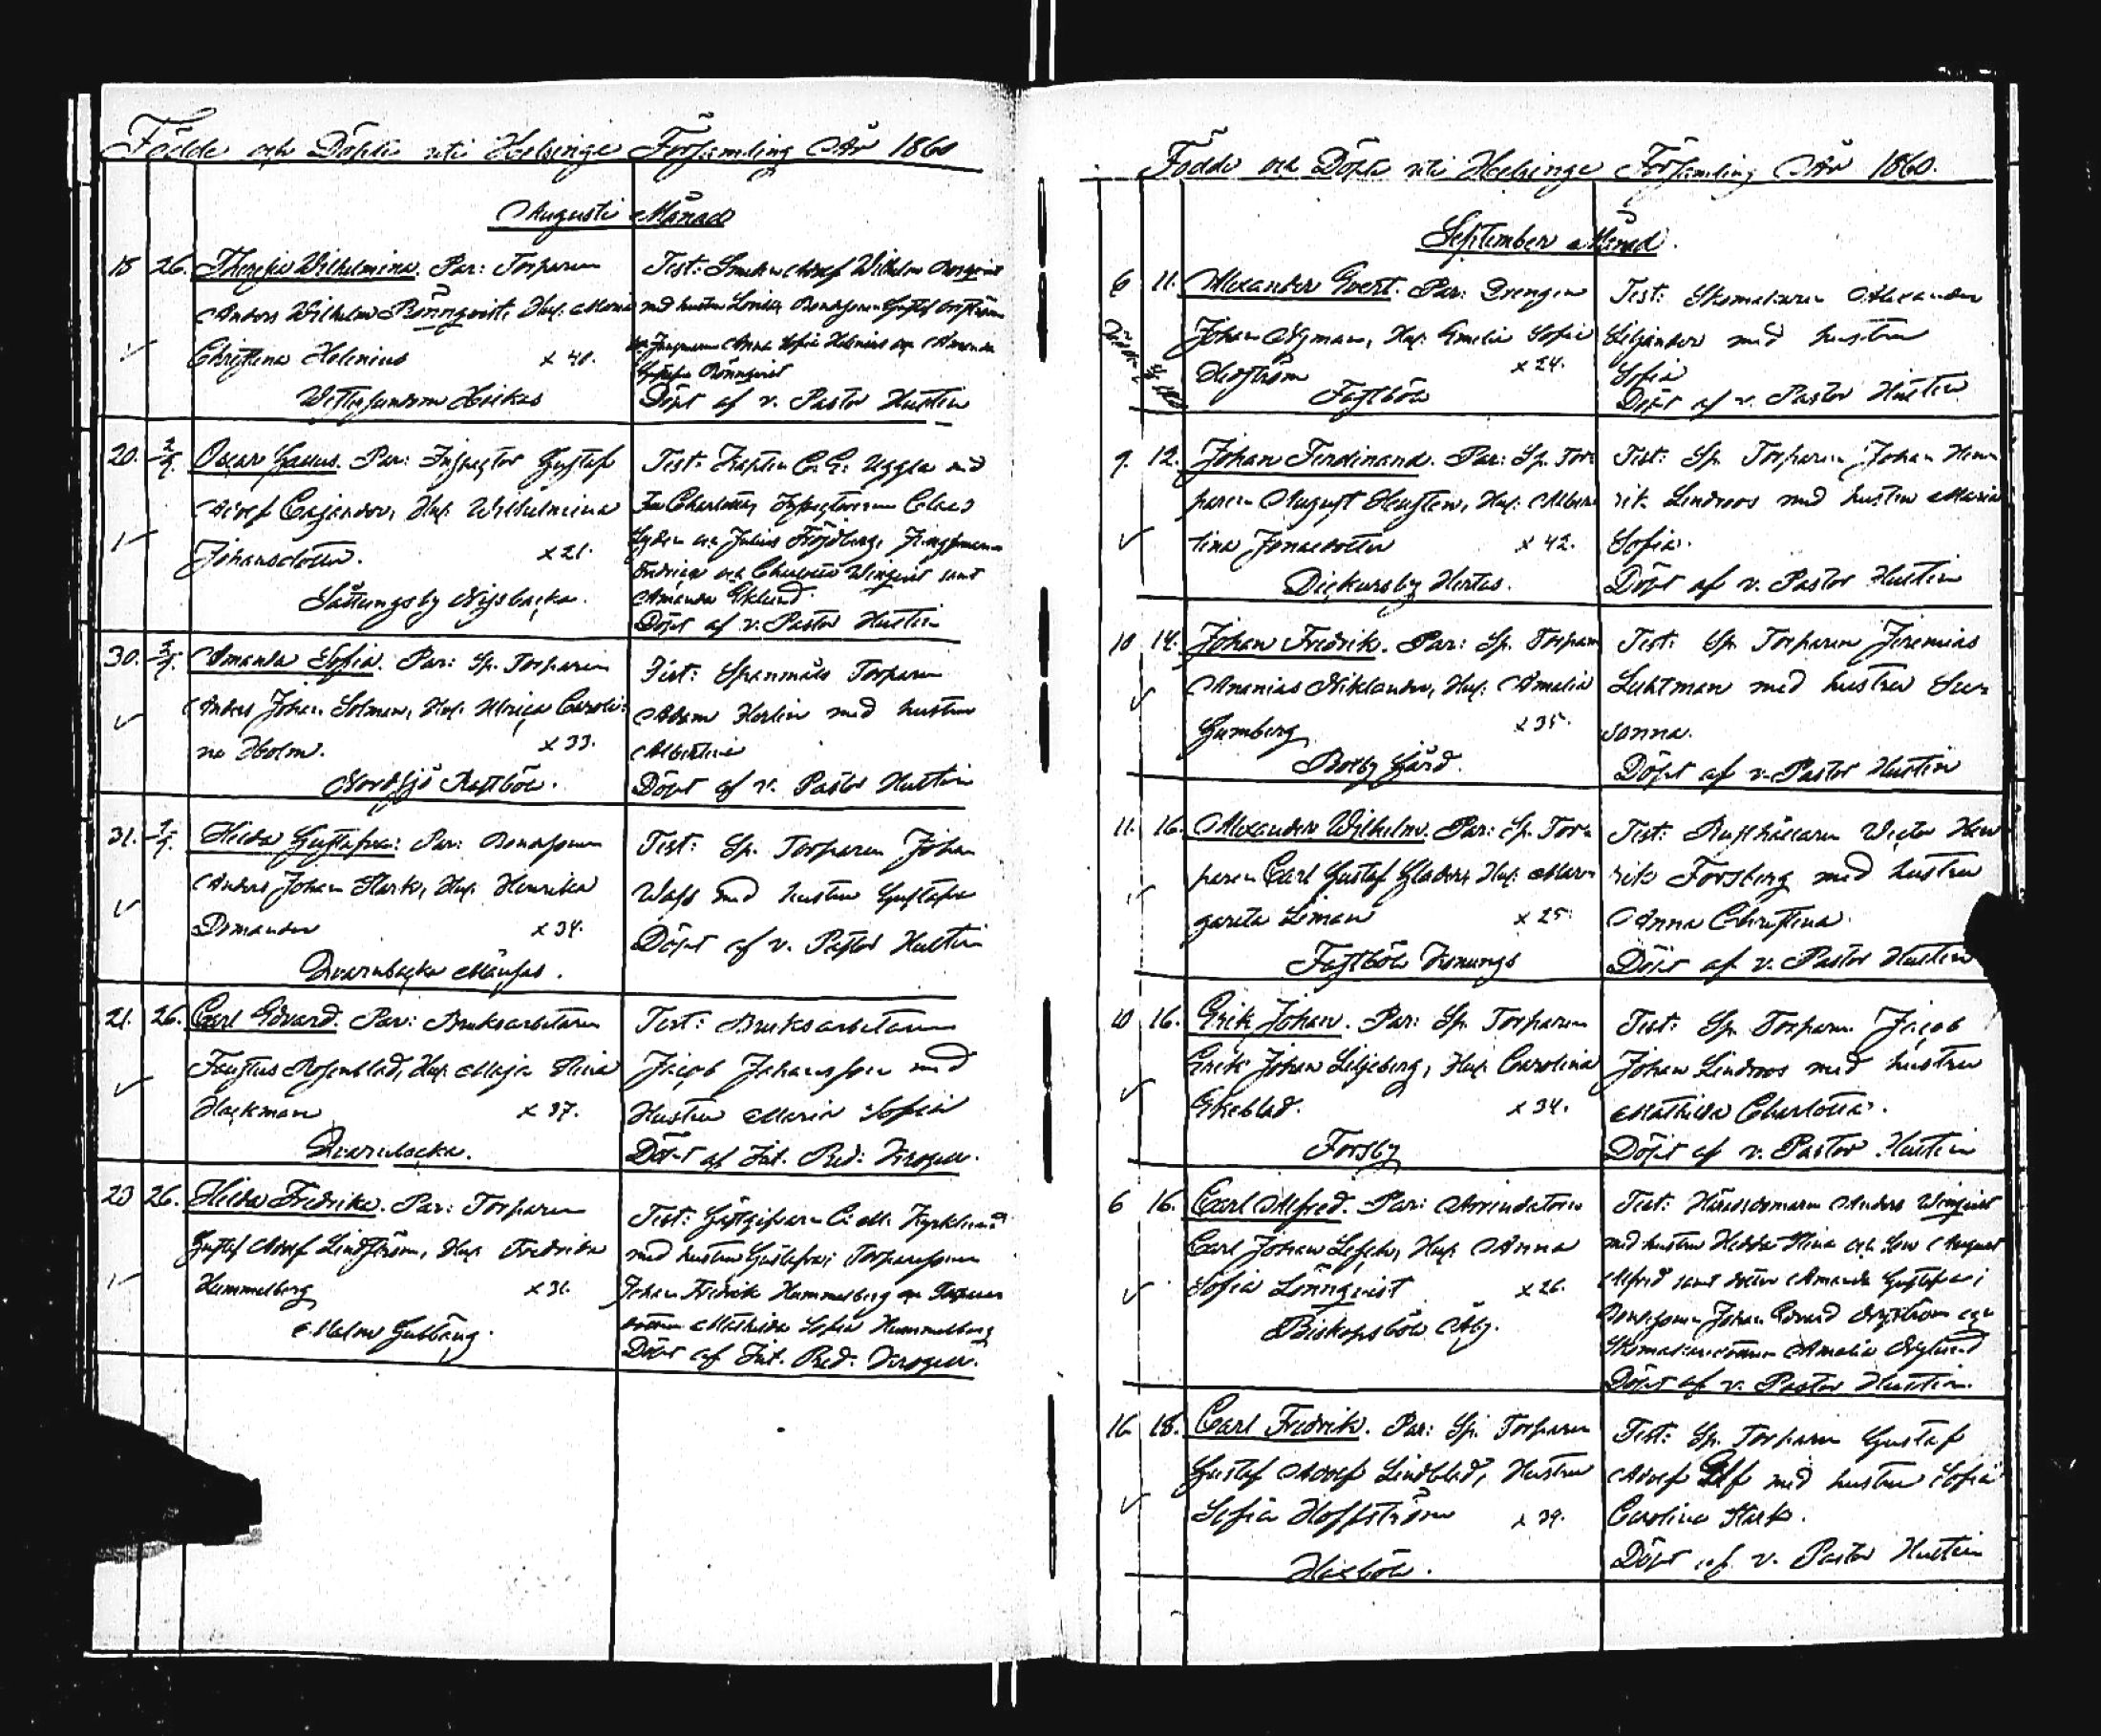 Födde och Döpte uti Helsinge Församling År 1860
Augusti Månad
18 26. Theresia Wilhelmina. Par: Torparen
Anders Wilhelm Rönnqvist, Hus: Maria
Christina Helenius x 40.
Test: Adolf Wilhelm
med hustru Lovisa, Gustaf
Anna Sofia Helenius och Amanda
Rönnqvist
Döpt af v. Pastor Hultin
20. 2/9. Oscar. Par: Inspector Gustaf
Adolf Cajander, Hus: Wilhelmina
Johansdotter. x 21.
Såttungsby Nissbacka.
Test: Kapten C. G. Uggla med
Fru Charlotta,
och Julius
och Charlotta Winqvist samt
Amanda Eklund.
Döpt af v. Pastor Hultin
30. 2/9. Amanda Sofia. Par: Sp. Torparen
Anders Johan Solman, Hus: Ulrica Caroli-
na Holm. x 33.
Nordsjö Rastböle.
Test: Spanmåls Torparen
Adam Herlin med hustru
Albertina
Döpt af v. Pastor Hultin
31. Hilda Gustafva: Par: Bondesonen
Anders Johan Stark, Hus: Henrika
x 34.
Qvarnbacka Månsas.
Test: Sp. Torparen Johan
Wass med hustru Gustafva
Döpt af v. Pastor Hultin
21. 26. Carl Edvard. Par: Bruksarbetaren
Faustus Rosenblad, Hus: Maja Stina
Hackman x 37.
Qvarnbacka.
Test: Bruksarbetaren
Jacob Johansson med
Hustru Maria Sofia
Döpt af Int. Pred:
23 26. Hilda Fredrika. Par: Torparen
Gustaf Adolf Lindström, Hus: Fredrika
Hummelberg x 31.
Malm Gubbäng.
Test: Gästgifvaren C. M. Kyrklund
med hustru Gustafva; Torparesonen
Johan Fredrik Hummelberg och
Mathilda Sofia Hummelberg
Döpt af Int. Pred.
Födde och Döpte uti Helsinge Församling År 1860.
September Månad.
6 11. Alexander Evert. Par: Drengen
Johan Nyman, Hus: Emelia Sofia
Hedström x 24.
Fastböle
Test: Skomakaren Alexander
Siljander med hustru
Sofia
Döpt af v. Pastor Hultin
9. 12. Johan Ferdinand. Par: Sp. Tor-
paren August Hensten, Hus: Alber-
tina Jonaedotter x 42.
Dickursby Hertas.
Test: Sp. Torparen Johan Hen-
rik Lindroos med hustru Maria
Sofia.
Döpt af v. Pastor Hultin
10 14. Johan Fredrik. Par: Sp. Torparen
Ananias Niklander, Hus: Amalia
Gumberg x 35.
Boxby Gård.
Test: Sp. Torparen Jeremias
Luhtman med hustru Su-
sanna.
Döpt af v. Pastor Hultin
11. 16. Alexander Wilhelm. Par: Sp. Tor-
paren Carl Gustaf Glader, Hus: Mar-
gareta Liman x 25.
Fastböle Konungs
Test: Rusthållaren Victor Hen-
rik Forsberg med hustru
Anna Christina.
Döpt af v. Pastor Hultin
10 16. Erik Johan. Par: Sp. Torparen
Erik Johan Liljeberg, Hus: Carolina
Ekeblad. x 34.
Forsby
Test: Sp. Torparen Jacob
Johan Lindroos med hustru
Mathilda Charlotta.
Döpt af v. Pastor Hultin
6 16. Carl Alfred. Par: Arrendatorn
Carl Johan, Hus: Anna
Sofia Lönnqvist x 26.
Biskopsböle Åby.
Test: Häradsdomaren Anders Winqvist
med hustru Hedda Stina och Son August
Alfred samt dotter Amanda Gustafva;
Bondesonen Johan Edvard Nyström och
Skomakaredottern Amalia Nylund
Döpt af v. Pastor Hultin.
16 18. Carl Fredrik. Par: Sp. Torparen
Gustaf Adolf Lindblad, Hustru
Sofia Hoffström x 39.
Haxböle.
Test: Sp. Torparen Gustaf
Adolf med hustru Sofia
Carolina Stark.
Döpt af v. Pastor Hultin